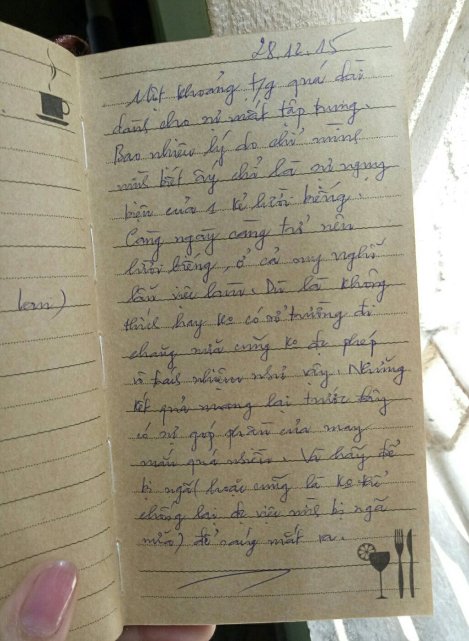 28.12.15
Một khoảng t/g quá dài
dành cho sự mất tập trung.
Bao nhiêu lý do chỉ mình
mình biết ấy chỉ là sự ngụy
biện của 1 kẻ lười biếng.
Càng ngày càng trở nên
lười biếng, ở cả suy nghĩ
lẫn việc làm. Dù là không
thích hay ko có sở trường đi
chăng nữa cũng ko đc phép
vô trách nhiệm như vậy. Những
kết quả mang lại trước đây
có sự góp phần của may
mắn quá nhiều. Và hãy để
bị ngã hoặc cũng là ko
chống lại việc mình bị ngã
nữa) để sáng mắt ra.
lem)